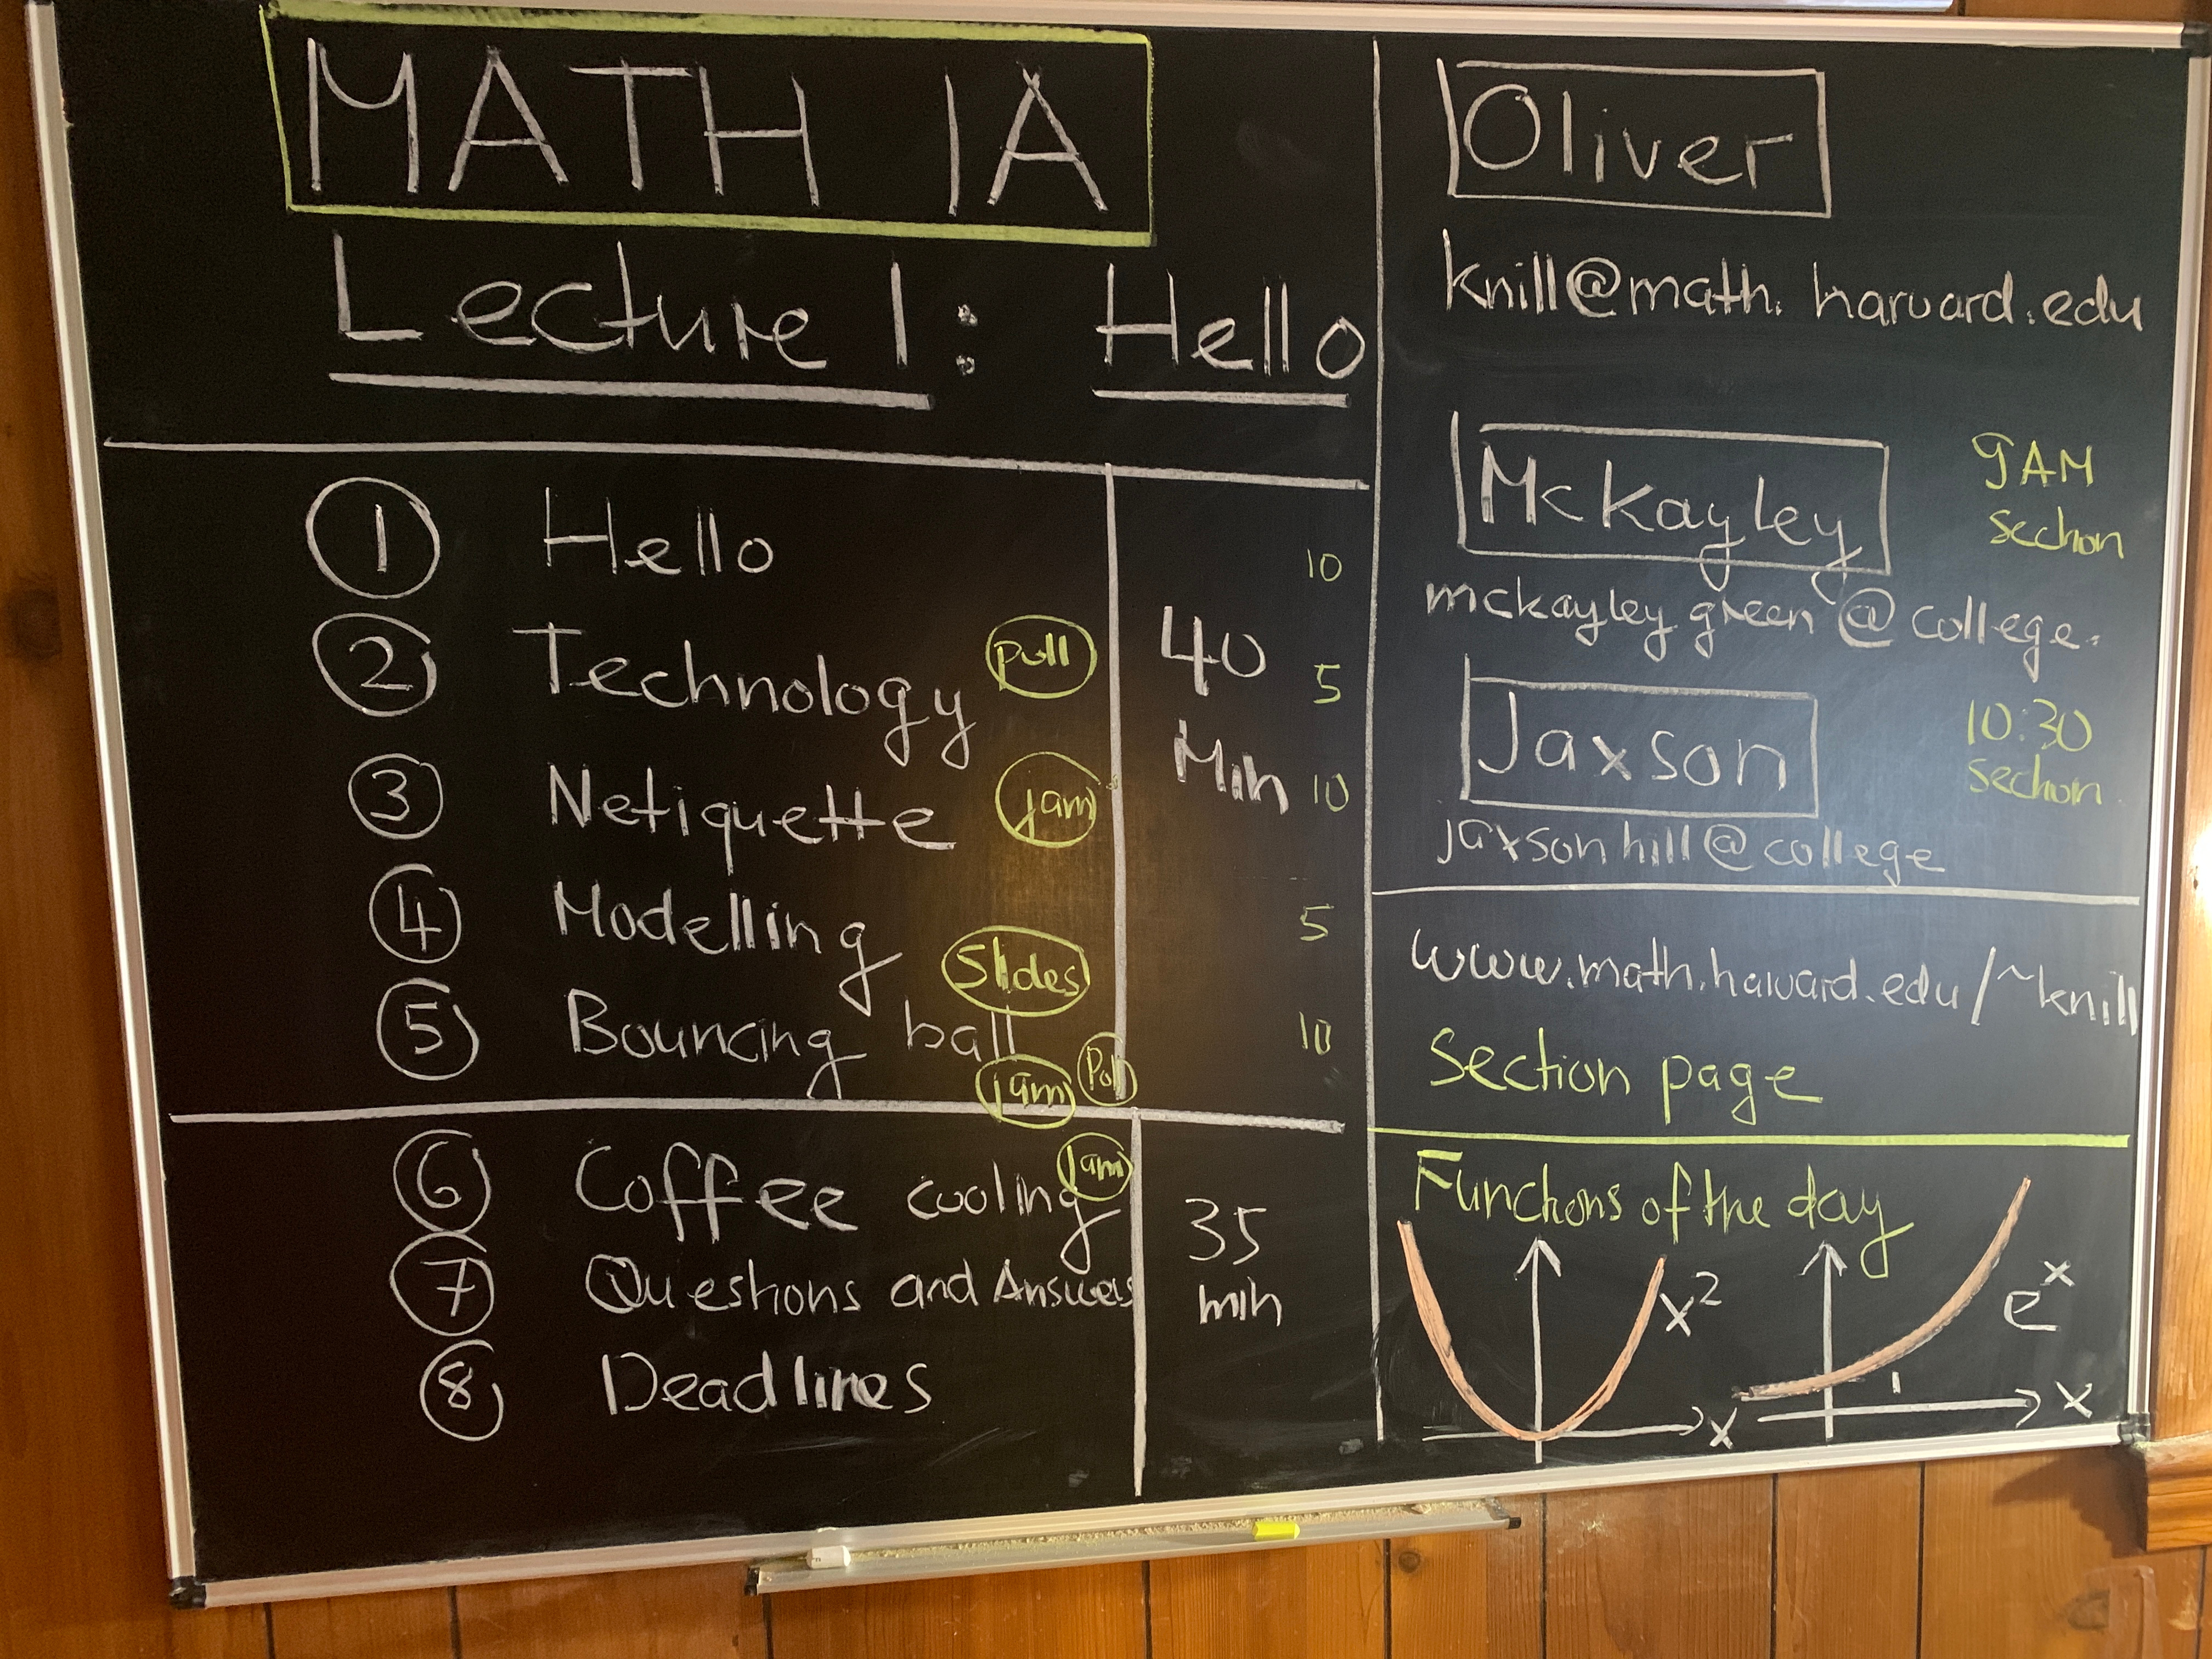 MATH 1A
Lecture 1: Hello
1 Hello 10
2 Technology poll 5
40 Min
3 Netiquette jam 10
4 Modelling 5
Slides
5 Bouncing ball 10
jam Poll
6 Coffee cooling jam
35 min
7 Questions and Answers
8 Deadlines
Oliver
knill@math.harvard.edu
McKayley 9AM section
mckayleygreen@college.
Jaxson 10:30 section
jaxsonhill@college
www.math.harvard.edu/~knill
Section page
Functions of the day
x² x
eˣ 1 x